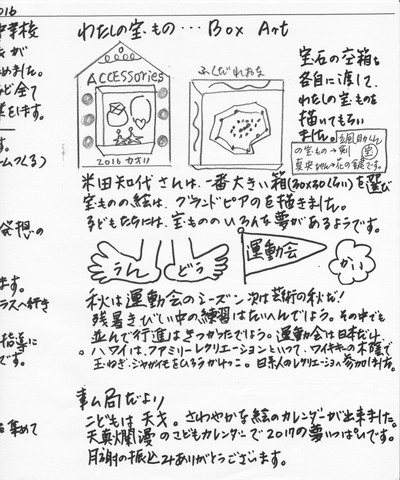 2016
中学校
が
めました。
ど全て
をします。
す。
発想の
ます。
ラスへ行き
指導に
です。
集めて
わたしの宝もの…Box Art
ACCESSORIES
2016 カオリ
ふくだ れおな
宝石の空箱を
各自に渡して、
わたしの宝ものを
描いてもらい
ました。
の宝もの→剣
米田知代さんは、一番大きい箱(30x30くらい)を選び
宝ものの絵は、グランドピアのを描きました。
子どもたちには、宝もののいろんな夢があるようです。
うん
どう
運動会
かい
秋は運動会のシーズン次は芸術の秋だ!
残暑きびしい中の練習はたいへんでしょう。その中でも
並んで行進はきつかったでしょう。運動会は日本だけ。
ハワイは、ファミリーレクリエーションといって、ワイキキの木陰で
玉ねぎ・ジャガイモをひろうかけっこ。日系人のレクリエーションへ参加しました。
事ム局だより
こどもは天才。さわやかな絵のカレンダーが出来ました。
天真爛漫のこどもカレンダーで2017の夢いっぱいです。
月謝の振込みありがとうございます。